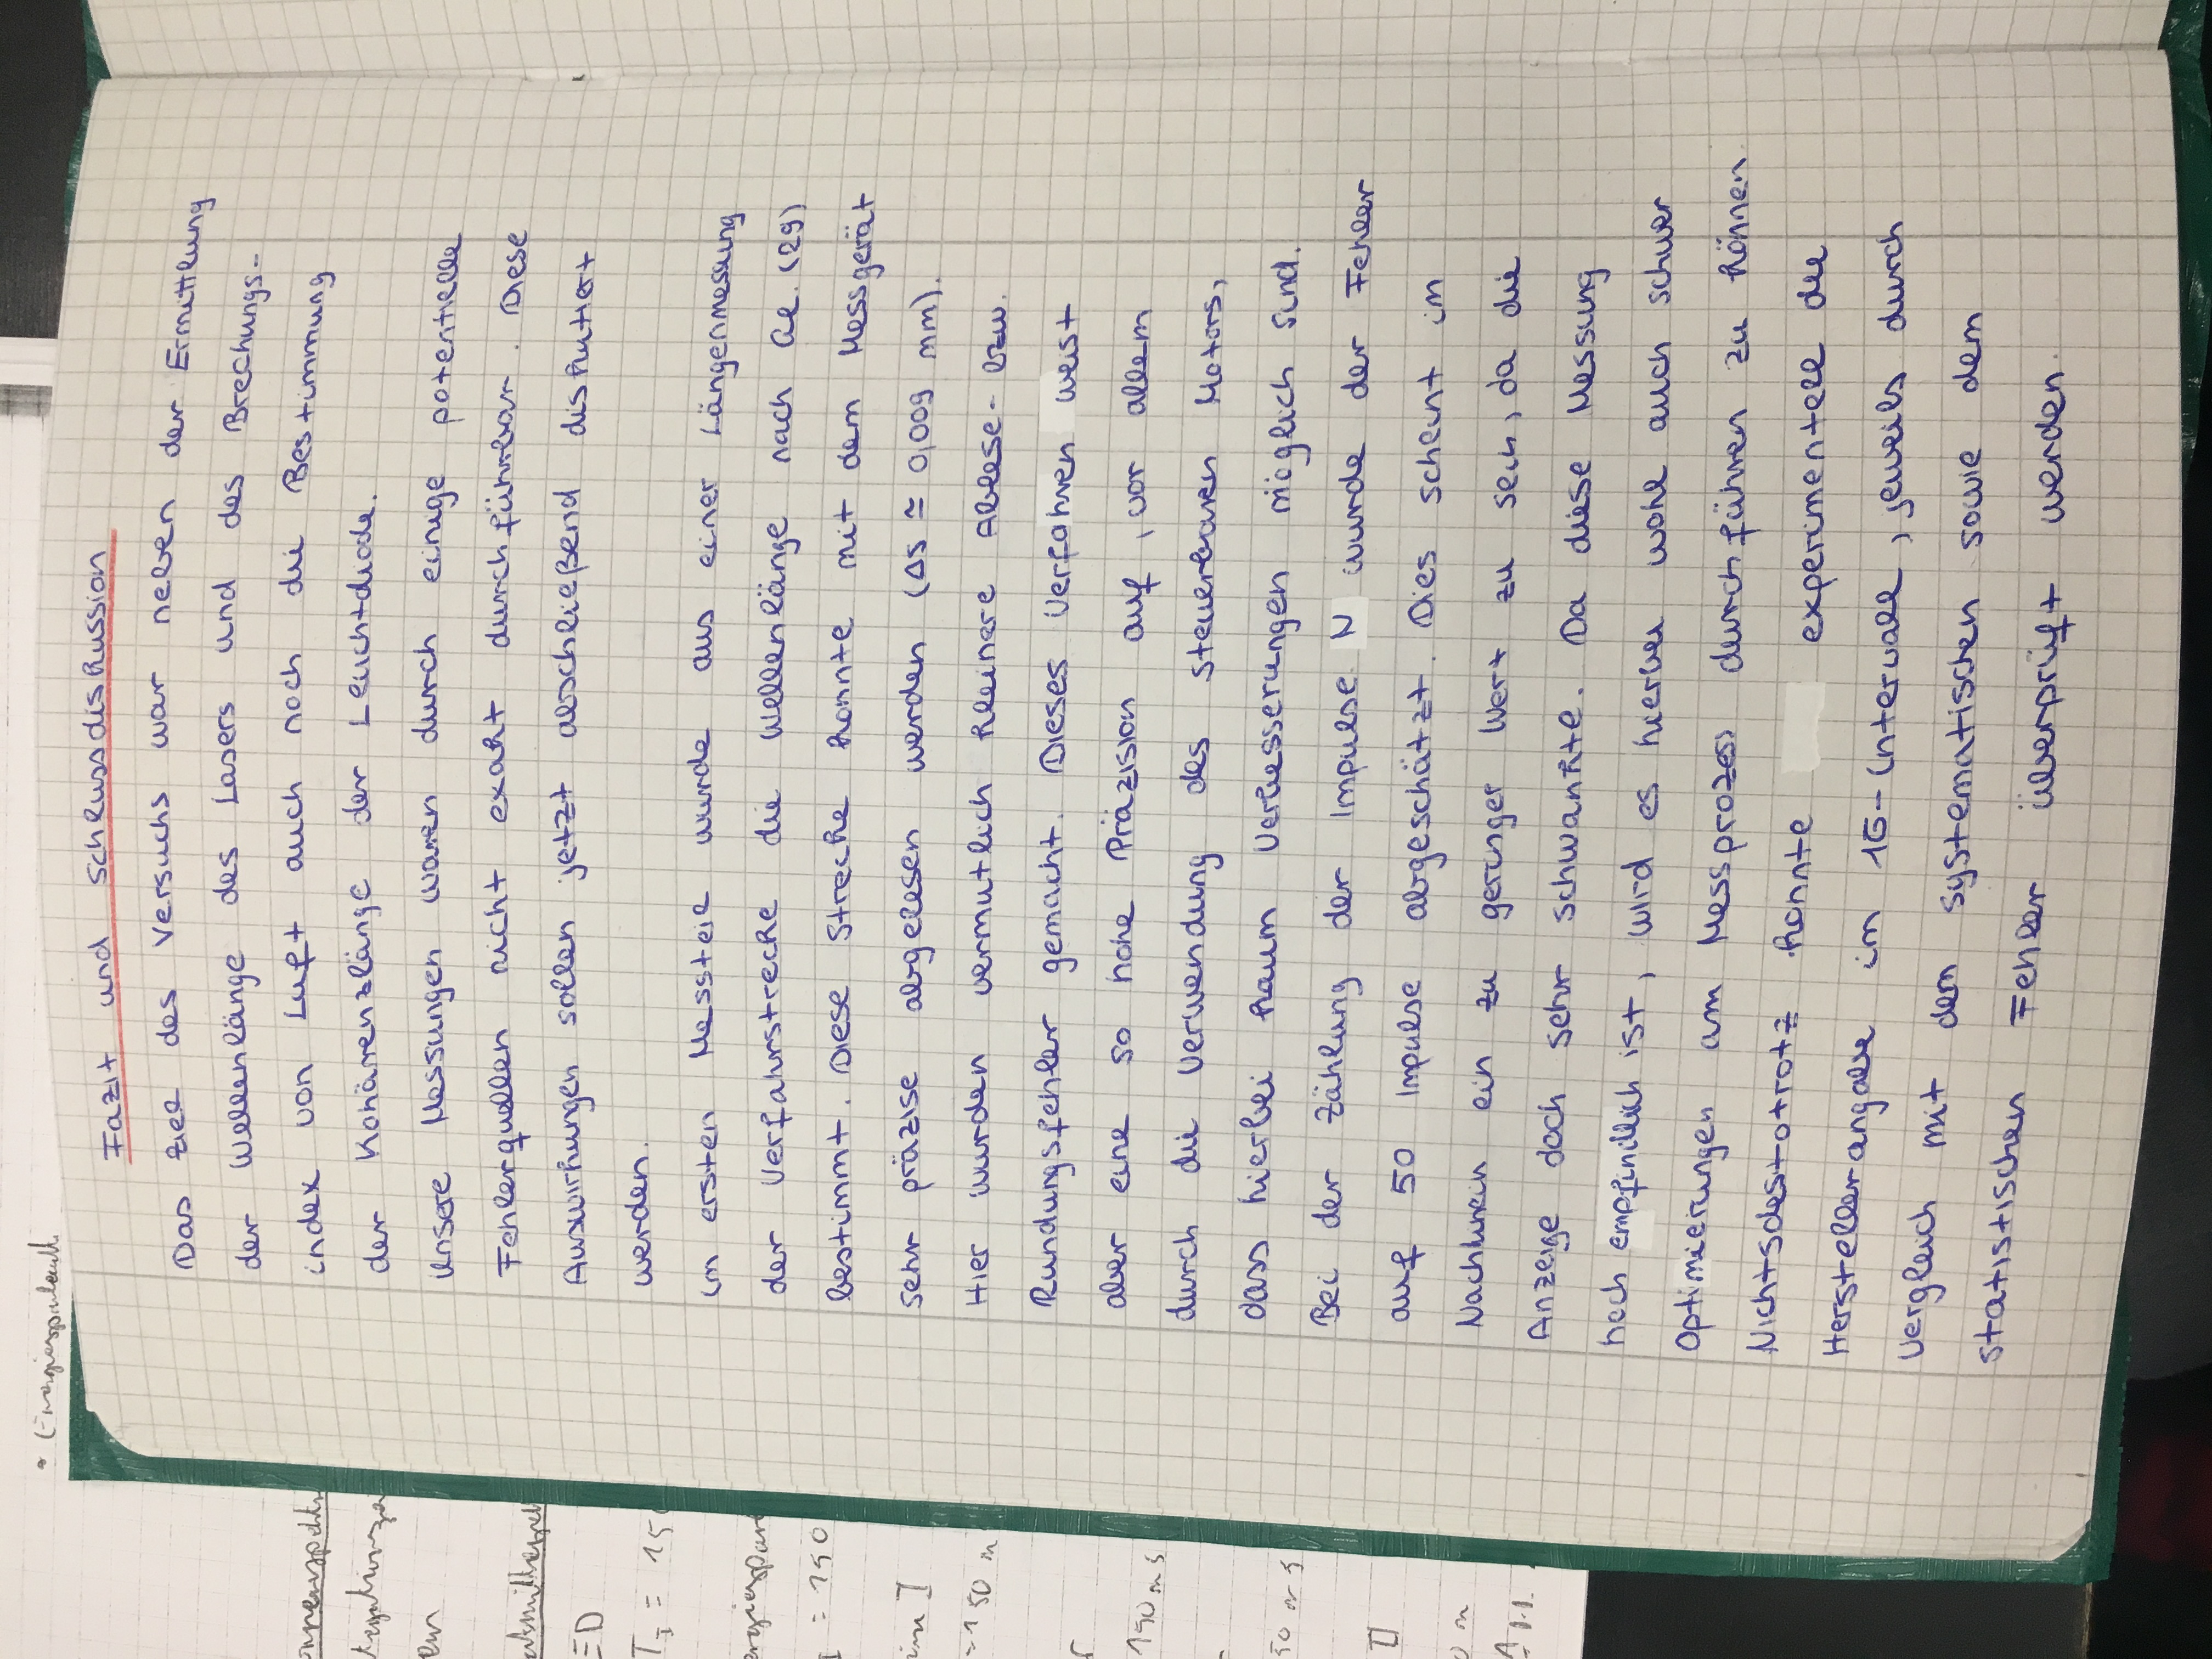 • Energiesparlamp
Fazit und Schlussdiskussion
Das Ziel des Versuchs war neben der Ermittlung
der Wellenlänge des Lasers und des Brechungs-
index von Luft auch noch die Bestimmung
der Kohärenzlänge der Leuchtdiode.
Unsere Messungen waren durch einige potentielle
Fehlerquellen nicht exakt durchführbar. Diese
Auswirkungen sollen jetzt abschließend diskutiert
werden.
Im ersten Messteil wurde aus einer Längenmessung
der Verfahrstrecke die Wellenlänge nach Gl. (29)
bestimmt. Diese Strecke konnte mit dem Messgerät
sehr präzise abgelesen werden (Δs ≃ 0,009 mm).
Hier wurden vermutlich kleinere Ablese- bzw.
Rundungsfehler gemacht. Dieses Verfahren weist
aber eine so hohe Präzision auf, vor allem
durch die Verwendung des steuerbaren Motors,
dass hierbei kaum Verbesserungen möglich sind.
Bei der Zählung der Impulse N wurde der Fehler
auf 50 Impulse abgeschätzt. Dies scheint im
Nachhinein ein zu geringer Wert zu sein, da die
Anzeige doch sehr schwankte. Da diese Messung
hoch empfindlich ist, wird es hierbei wohl auch schwer
Optimierungen am Messprozess durchführen zu können
Nichtsdestotrotz konnte experimentell die
Herstellerangabe im 1σ-Intervall, jeweils durch
Vergleich mit dem systematischen sowie dem
statistischen Fehler überprüft werden.
ED
= 150
= 150 m
150 ms
50 ms
II